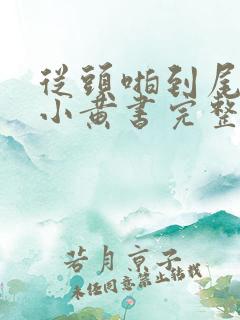 從頭啪到尾
小黃書完整
若月京子
未经同意禁止转载